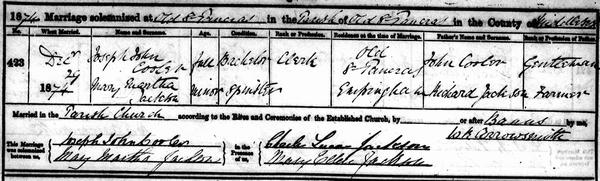 1874 Marriage solemnized at Old St Pancras in the Parish of Old St Pancras in the County of Middlesex
No. When Married. Name and Surname. Age. Condition. Rank or Profession. Residence at the time of Marriage. Father's Name and Surname. Rank or Profession of Father.
423 Decr 29 1874
Joseph John Full Bachelor Clerk Old St Pancras John Gentleman
Mary Martha Jackson Minor Spinster Richard Jackson Farmer
Married in the Parish Church according to the Rites and Ceremonies of the Established Church, by or after Banns by me,
W.R. Arrowsmith
This Marriage was solemnized between us, Joseph John
Mary Martha Jackson
in the Presence of us, Charles Jackson
Mary Jackson